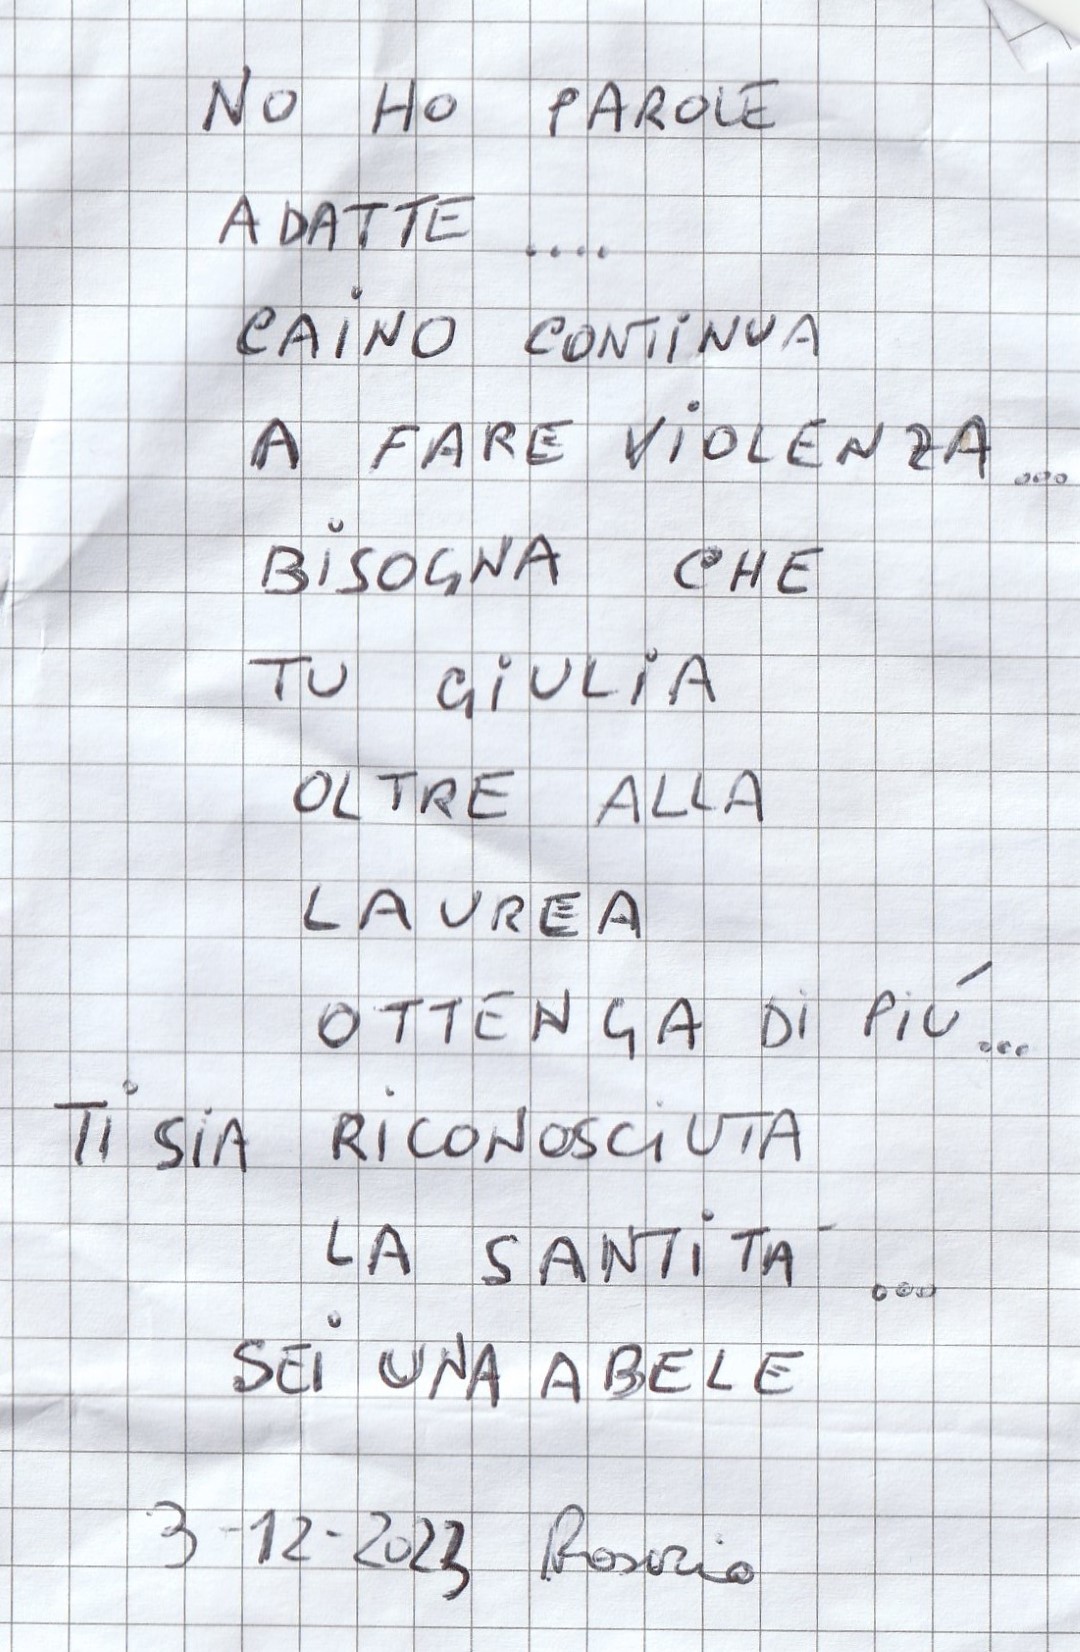 NO HO PAROLE
ADATTE ....
CAiNO CONTiNUA
A FARE ViOLENZA ...
BiSOGNA CHE
TU GiULiA
OLTRE ALLA
LAUREA
OTTENGA Di PiÚ...
Ti SiA RiCONOSCiUTA
LA SANTiTA' ...
SEi UNA ABELE
3-12-2023 Rosario